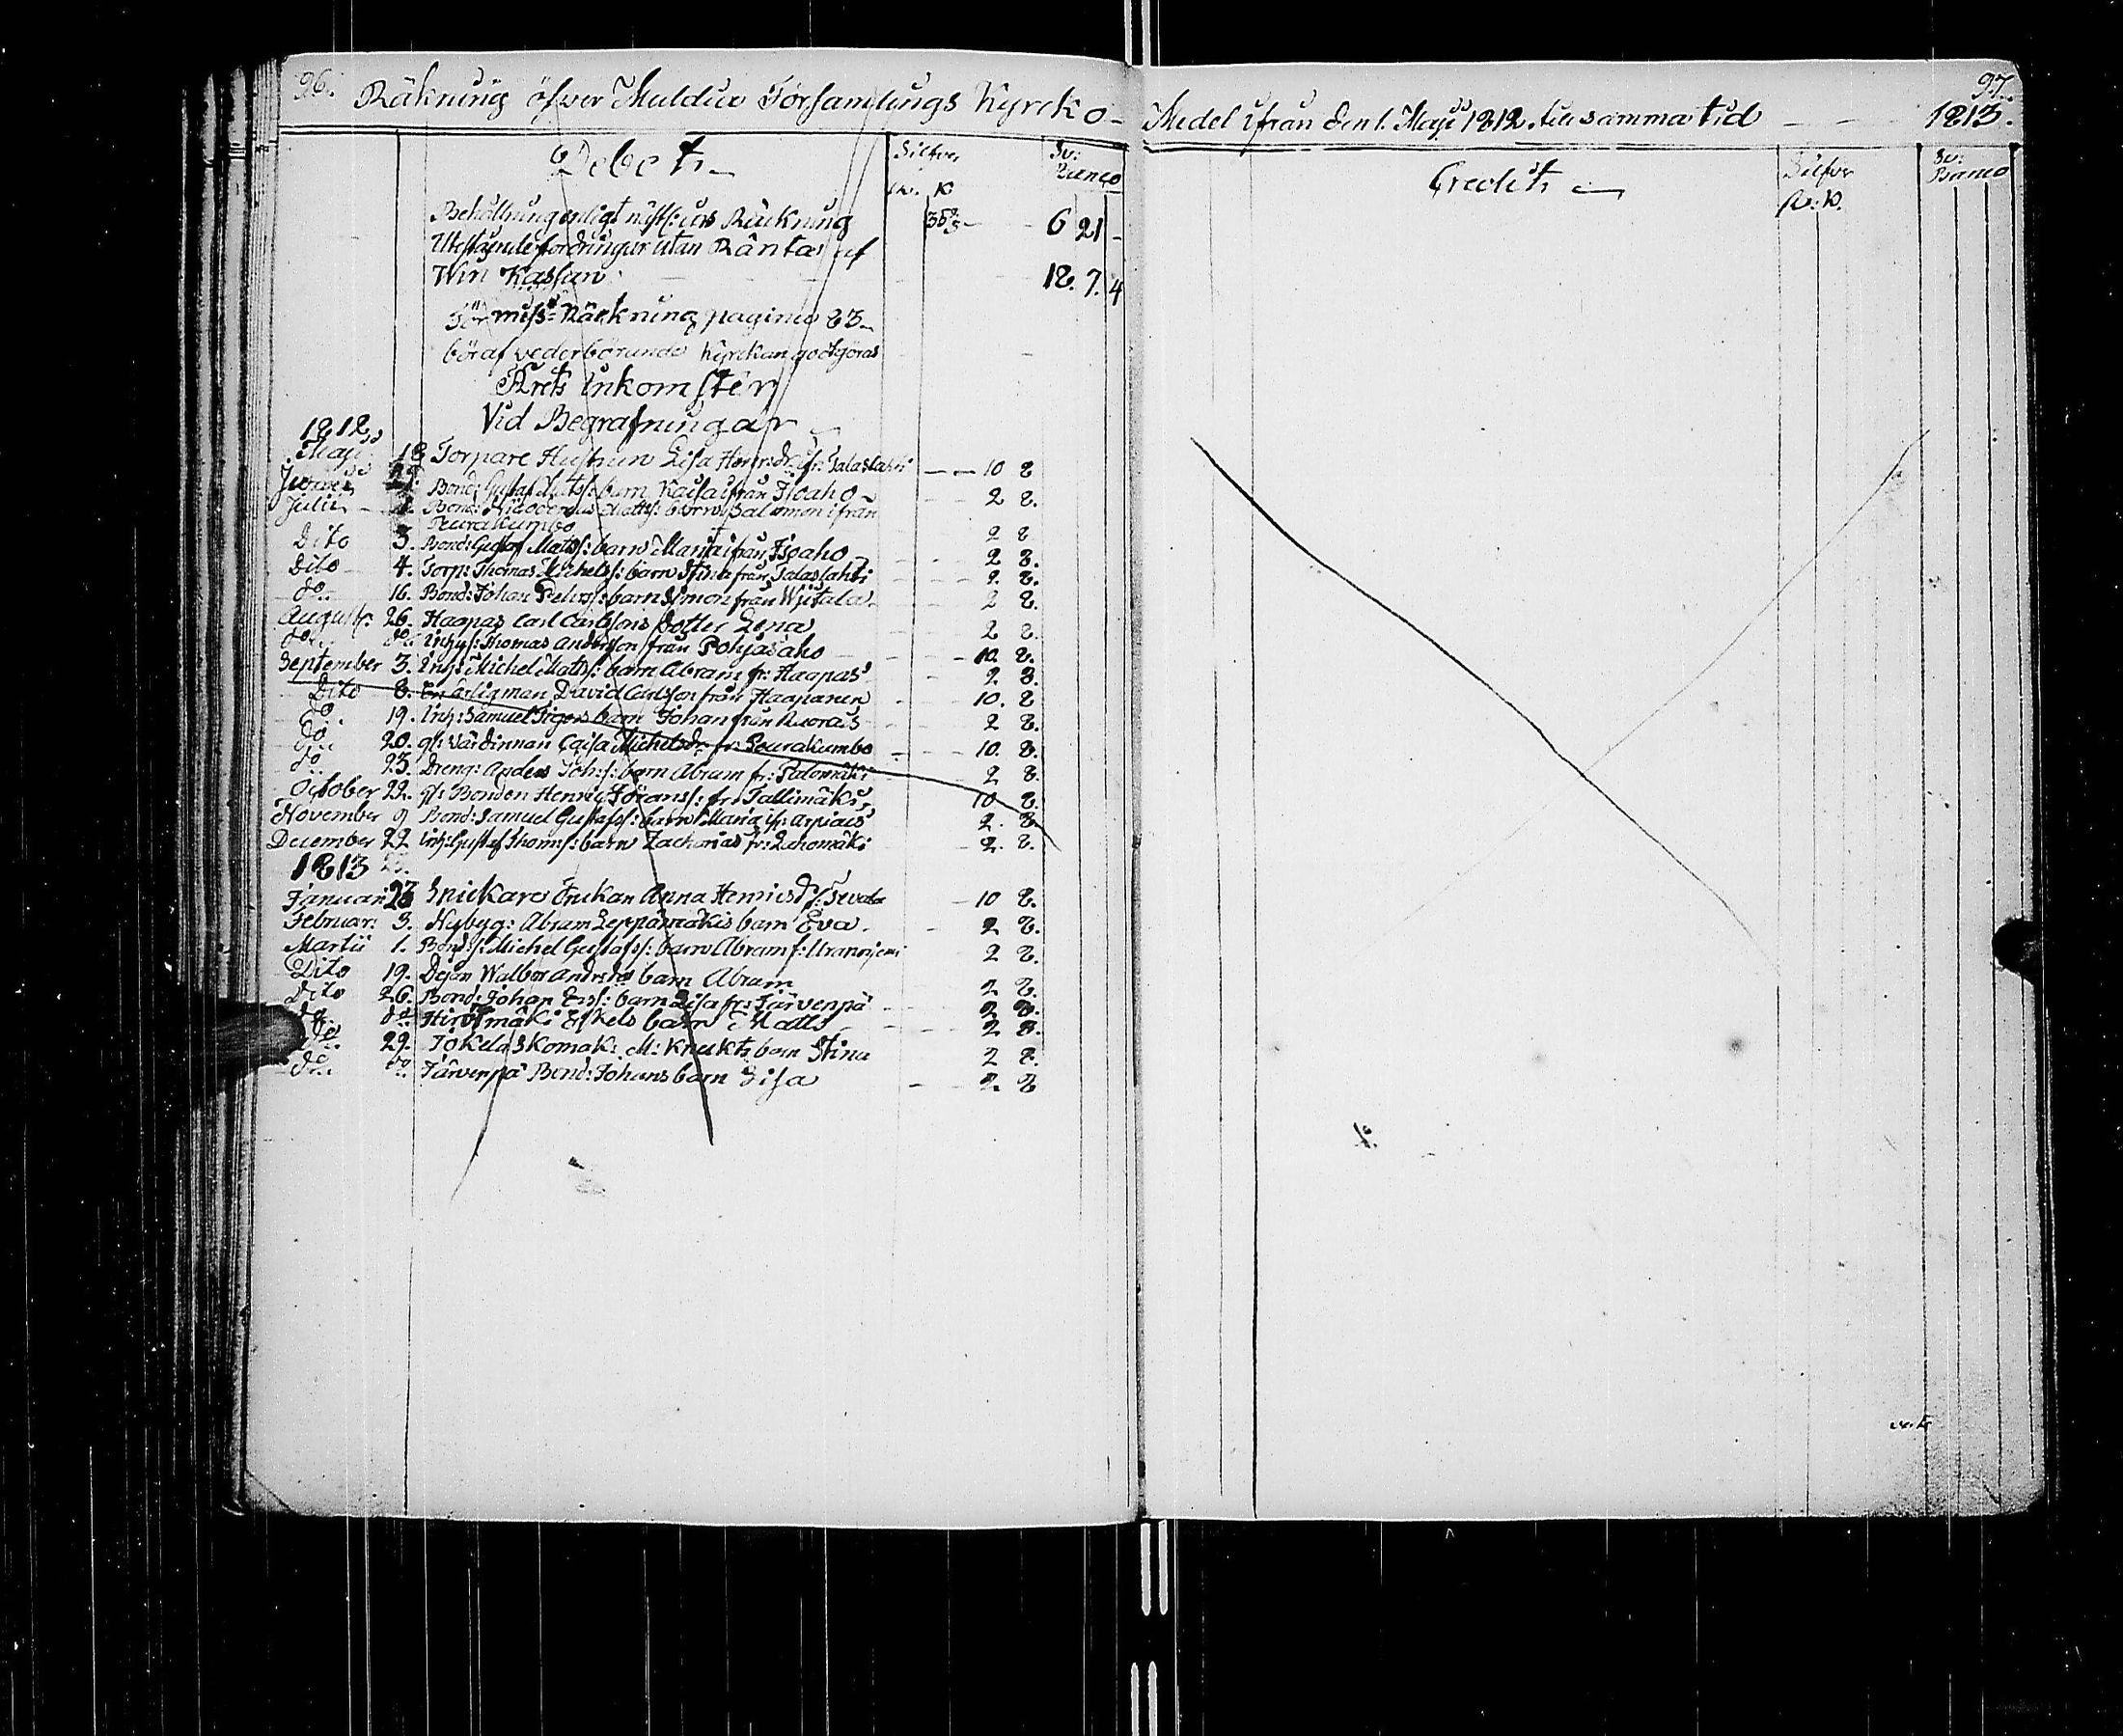 96.
Räkning öfver Muldia Församlings Kyrcko-
Debet
Silfver
Sv:
Banco
R. K
Behållning enligt näst: års Räckning 6 21 -
Utestående fordringar utan Ränta af
Win Kassan 18. 7. 4
För miss-Räckning pagina 83
bör af vederbörande Kyrckan godtgöras
Årets Inkomster
Vid Begrafningar
1812
Maji 18 Torpare Hustrun Lisa Henr:dr: fr: Talaslahti 10 8
Junii Bond: Gustaf Matts: barn Kaisa ifrån Isoaho 2 8.
Julii Bond: Nicodemus Matts: barn Salomon ifrån
Peurakumbo 2 8
Dito 3. Bond: Gustaf Matts: barn Maria ifrån Isoaho 2 8.
Dito 4. Torp: Thomas Michels: barn Stina från Talaslahti 2. 8.
do. 16. Bond: Johan Peters: barn Simon från Wjitala 2 8.
Augusti: 26. Haapas Carl Carlssons dotter Lena 2 8.
do. do. Inhys: Thomas Andersson från Pohjasaho 10. 8.
September 3. Inh: Michel Matts: barn Abram fr: Haapas 2. 8.
Dito 8. En ärlig man David Carlsson från Haapanen 10. 8
do. 19. Inh: Samuel Sigers barn Johan från Kuorais 2 8
do. 20. gl: Värdinnan Caisa Michelsdr: fr: Peurakumbo 10. 8.
do. 23. Dreng: Anders Joh:s: barn Abram fr: Palomäki 2 8.
October 22. gl: Bonden Henric Jörans: fr: Tallimäki 10 8.
November 9 Bond: Samuel Gustafs: barn Maria ifr: Arpiais 2. 8
December 22 Inh: Gustaf Thoms: barn Zacharias fr: Lehomäki 2. 8
1813
Januari 23 Snickare Enckan Anna Henricsd: 10 8.
Februar: 3. Nybyg: Abram Leppämäkis barn Eva 2 8.
Martii 1. Bond: s: Michel Gustafs: barn Abram f: Uranniemi 2 8.
Dito 19. Dejan Walbor Andrsdrs barn Abram 2 8.
Dito 26. Bond: Johan Ers: barn Lisa fr: Järvenpä 2 8.
do. do Hirvimäki Eskels barn Matts 2 8.
do. 29. Jokela Skomak: M: Knuckts barn Stina 2 8.
do. do. Järvenpä Bond: Johans barn Lisa 2. 8
97.
Medel ifrån den 1. Maji 1812. till samma tid 1813.
Credit
Silfver
R: K.
Sv:
Banco